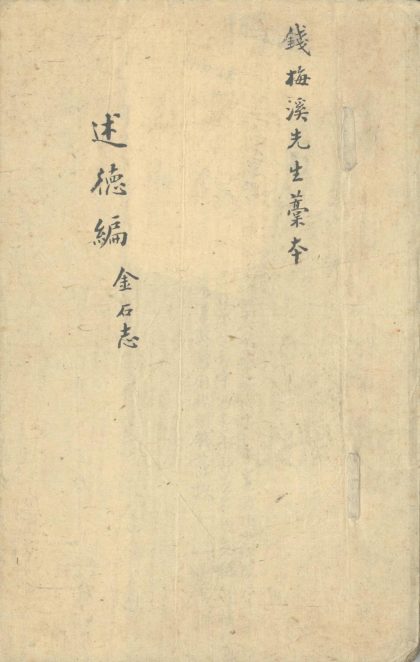 錢梅溪先生藳本
述德編
金石志